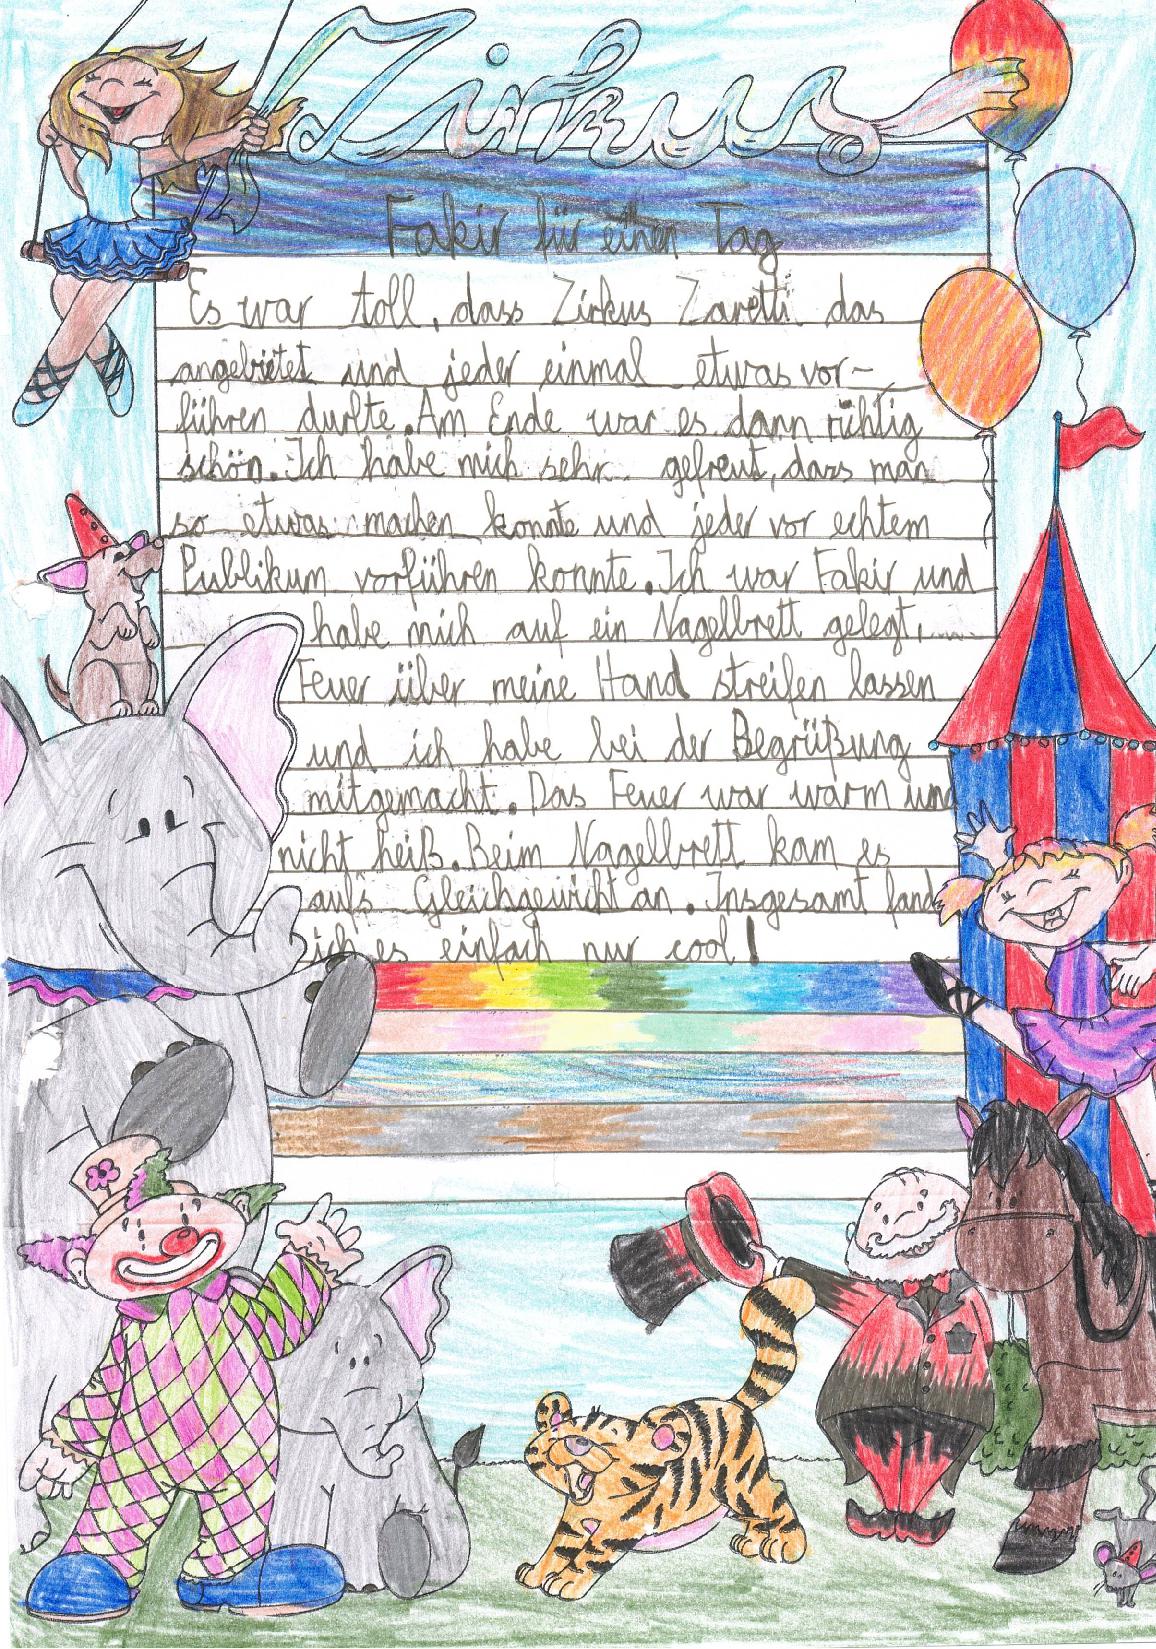 Zirkus
Fakir für einen Tag
Es war toll, dass Zirkus Zaretti das
angebietet und jeder einmal etwas vor-
führen durfte. Am Ende war es dann richtig
schön. Ich habe mich sehr gefreut, dass man
so etwas machen konnte und jeder vor echtem
Publikum vorführen konnte. Ich war Fakir und
habe mich auf ein Nagelbrett gelegt,
Feuer über meine Hand streifen lassen
und ich habe bei der Begrüßung
mitgemacht. Das Feuer war warm und
nicht heiß. Beim Nagelbrett kam es
aufs Gleichgewicht an. Insgesamt fand
ich es einfach nur cool!